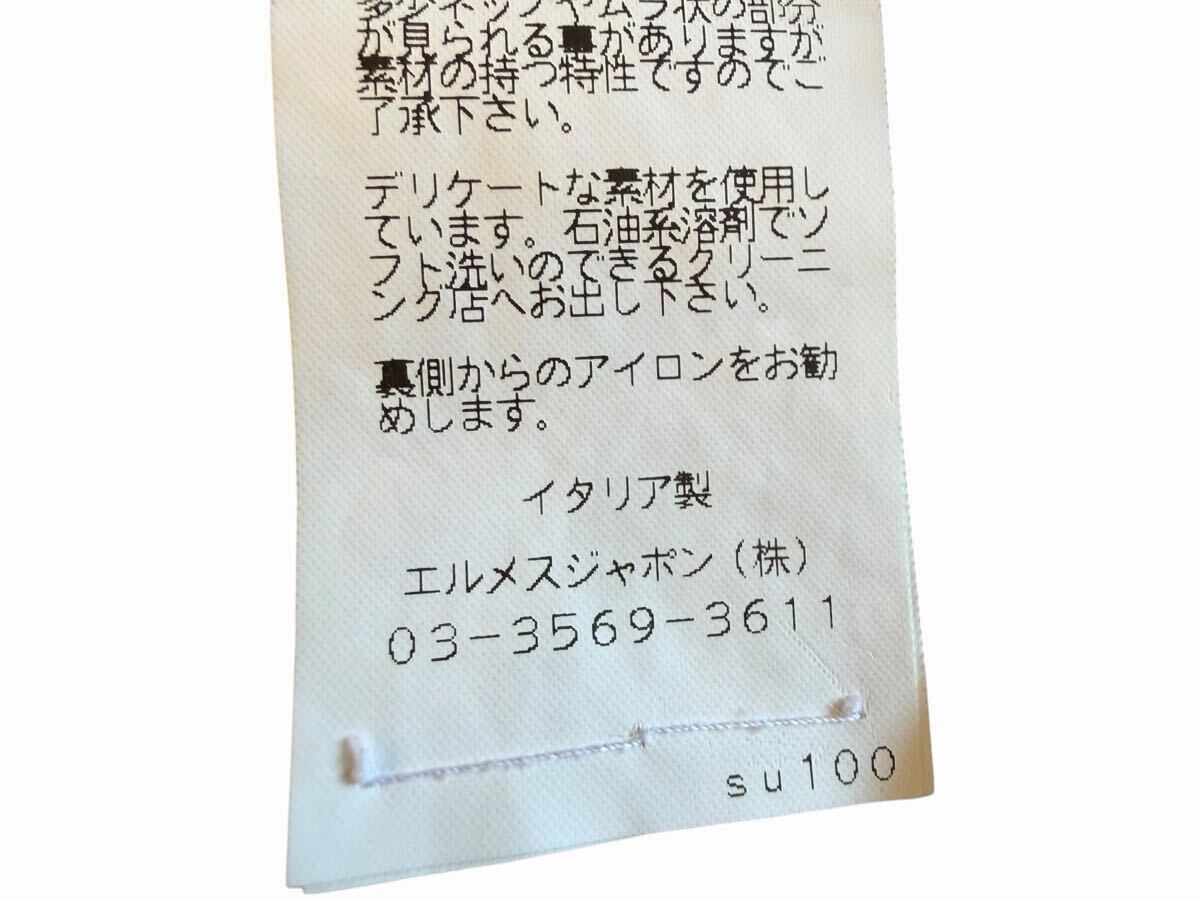 が見られる事がありますが
素材の持つ特性ですのでご
了承下さい。
デリケートな素材を使用し
ています。石油系溶剤でソ
フト洗いのできるクリーニ
ング店へお出し下さい。
裏側からのアイロンをお勧
めします。
イタリア製
エルメスジャポン(株)
03-3569-3611
su100